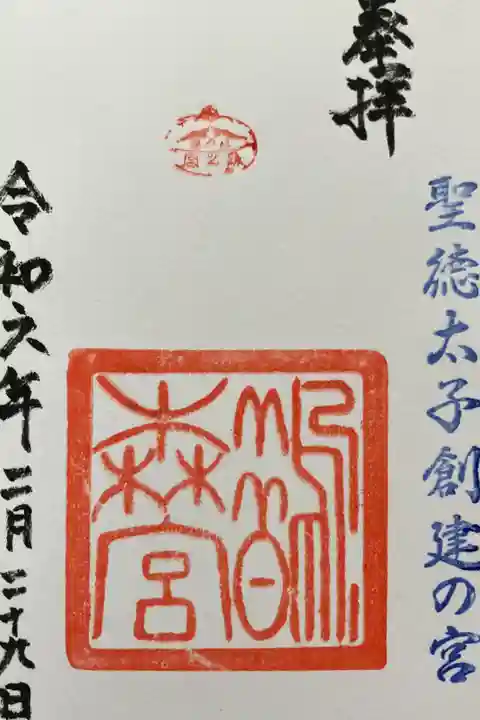 聖徳太子創建の宮
奉拝
鵲森宮
令和六年二月二十九日